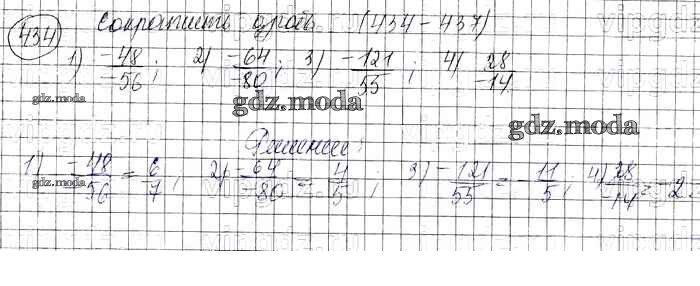 434 Сократить дробь (434-437)
1) -48/-56; 2) -64/-80; 3) -121/55; 4) 28/-14
gdz.moda gdz.moda gdz.moda
Решение:
1) -48/-56 = 6/7; 2) -64/-80 = 4/5; 3) -121/55 = -11/5; 4) 28/-14 = -2.
gdz.moda